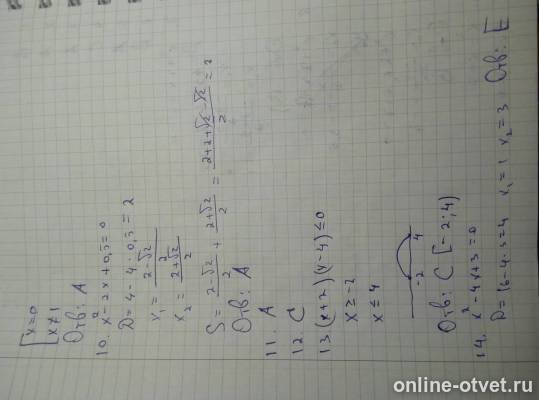 [x=0
x≠1
Отв: A
10. x²-2x+0,5=0
D=4-4·0,5=2
x₁=(2-√2)/2
x₂=(2+√2)/2
S=(2-√2)/2+(2+√2)/2=(2+2+√2-√2)/2=2
Отв: A
11. A
12. C
13 (x+2)(x-4)≤0
x≥-2
x≤4
-2 4
Отв: C [-2;4)
14. x²-4x+3=0
D=16-4·3=4 x₁=1 x₂=3 Отв: E
online-otvet.ru